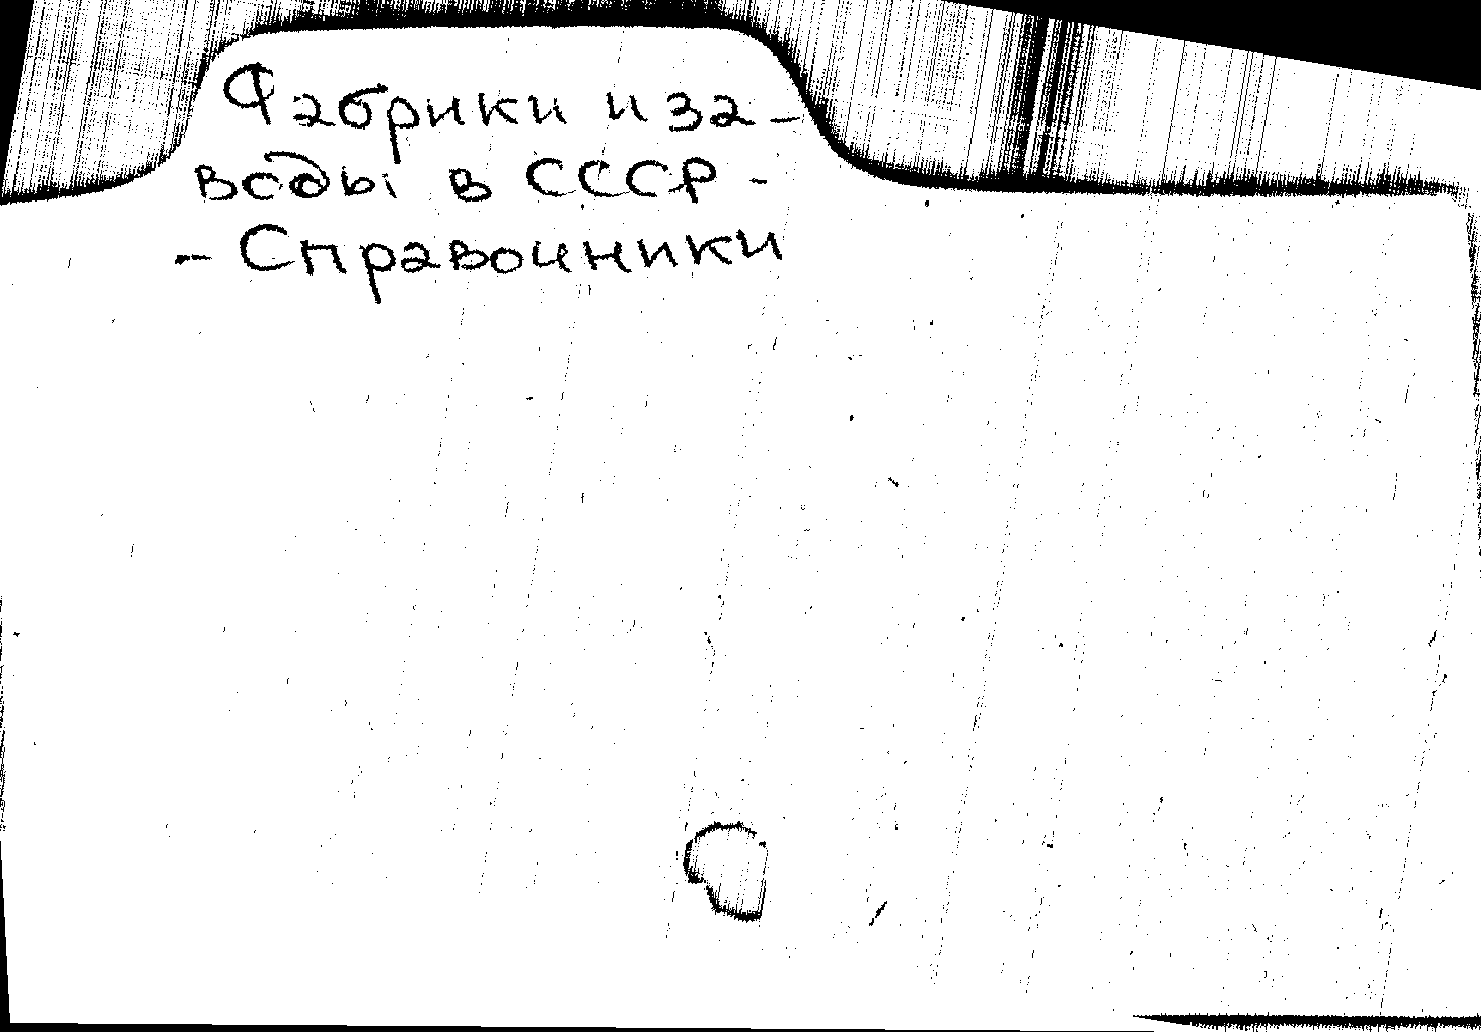 Фабрики и за-
воды в СССР -
- Справочники